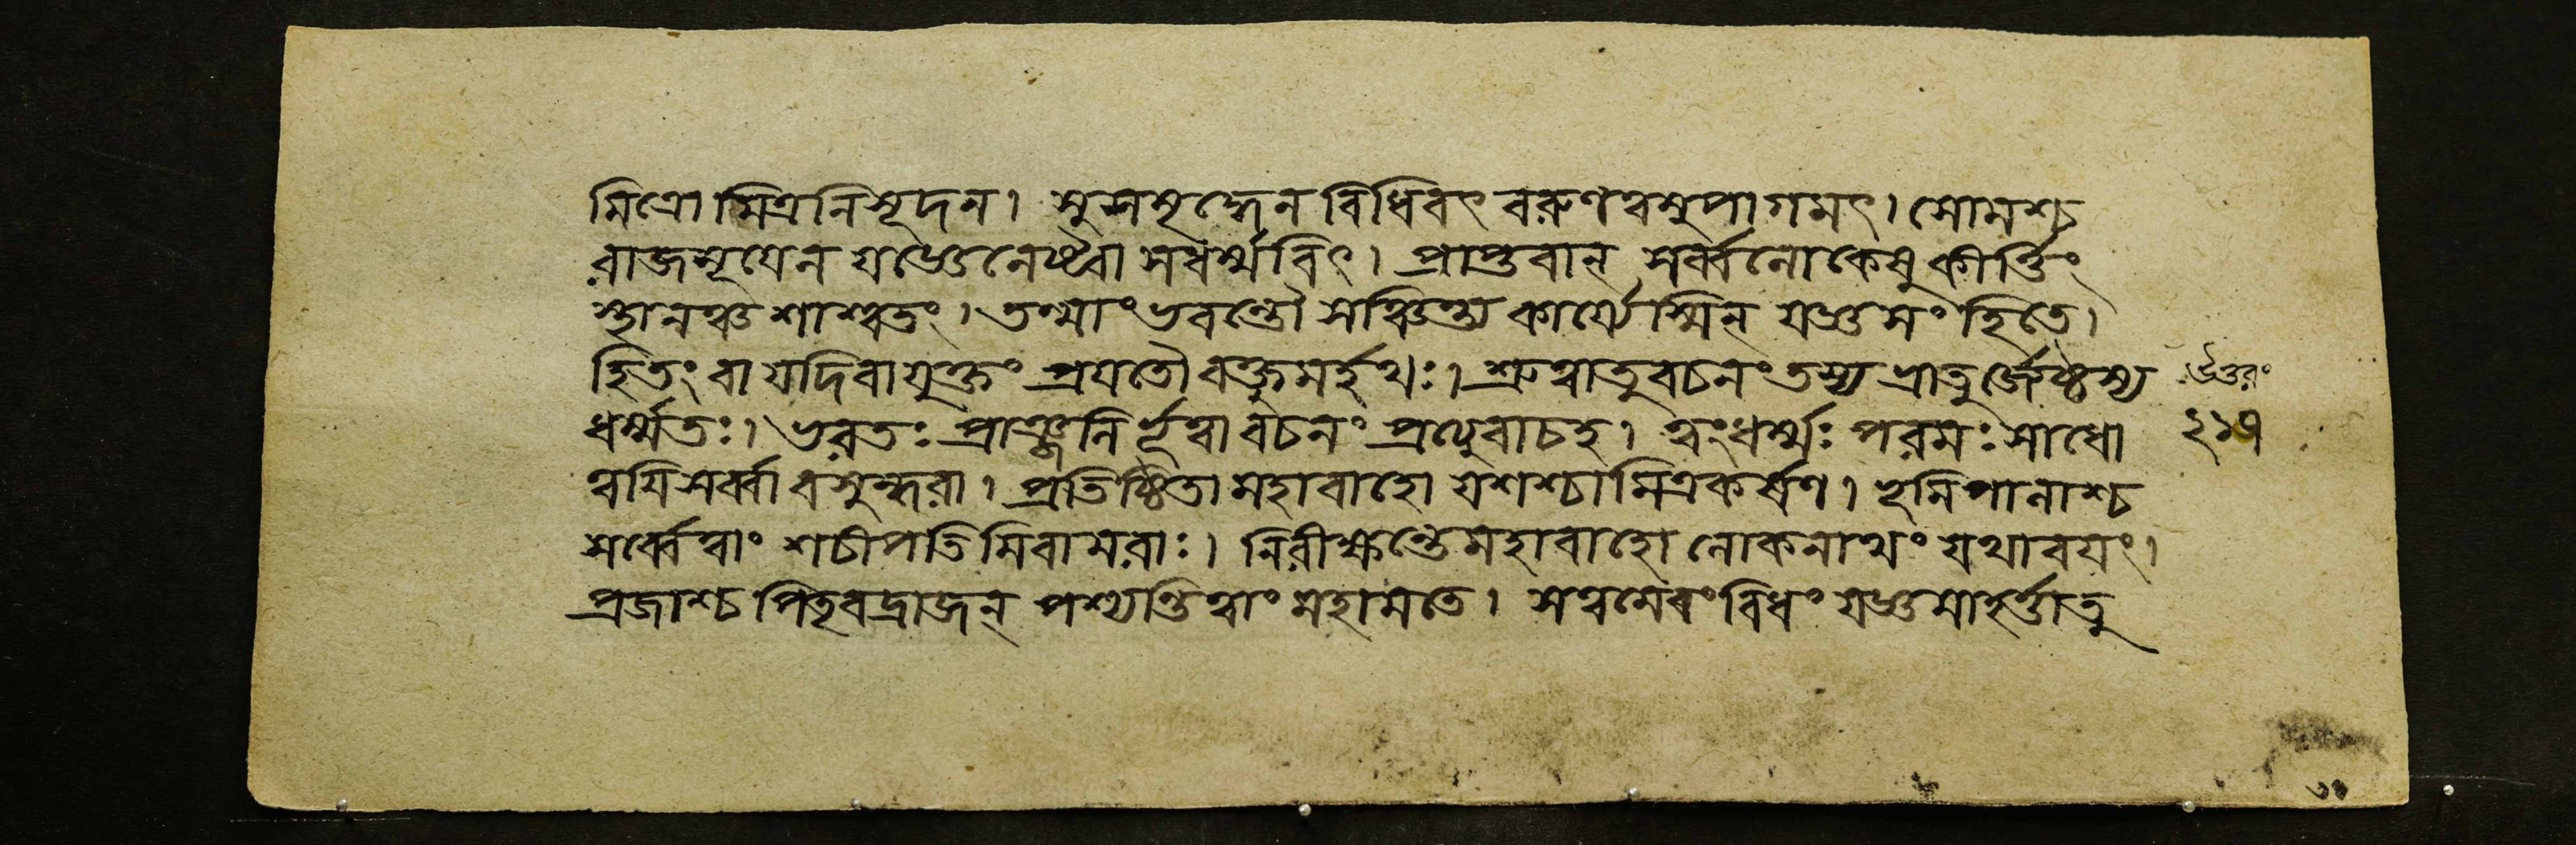 মিত্রো মিত্রনিসূদন। সুসমৃদ্ধেন বিধিবৎ বরুণত্বমুপাগমৎ। সোমশ্চ
রাজসূযেন যজ্ঞেনেষ্ট্বা সধর্ম্মবিৎ। প্রাপ্তবান্ সর্ব্বলোকেষু কীর্ত্তিং
স্থানঞ্চ শাশ্বতং। তন্মাং ভবন্তৌ সঞ্চিন্ত্য কার্য্যেস্মিন্ যজ্ঞসংহিতে।
হিতং বা যদি বা যুক্তং প্রযতৌ বক্তুমর্হথঃ। শ্রুত্বা তু বচনং তস্য ভ্রাতুর্জ্যেষ্ঠস্য
উত্তরং
ধর্ম্মতঃ। ভরতঃ প্রাঞ্জলির্ভূত্বা বচনং প্রত্যুবাচ হ। ত্বং ধর্ম্মঃ পরমঃ সাধো
২১৭
ত্বযি সর্ব্বা বসুন্ধরা। প্রতিষ্ঠিতা মহাবাহো যশশ্চামিত্রকর্ষণ। ভূমিপালাশ্চ
সর্ব্বে ত্বাং শচীপতিমিবামরাঃ। নিরীক্ষন্তে মহাবাহো লোকনাথং যথা বযং।
প্রজাশ্চ পিতৃবদ্রাজন্ পশ্যন্তি ত্বাং মহামতে। স ত্বমেবংবিধং যজ্ঞমাহর্ত্তা তু